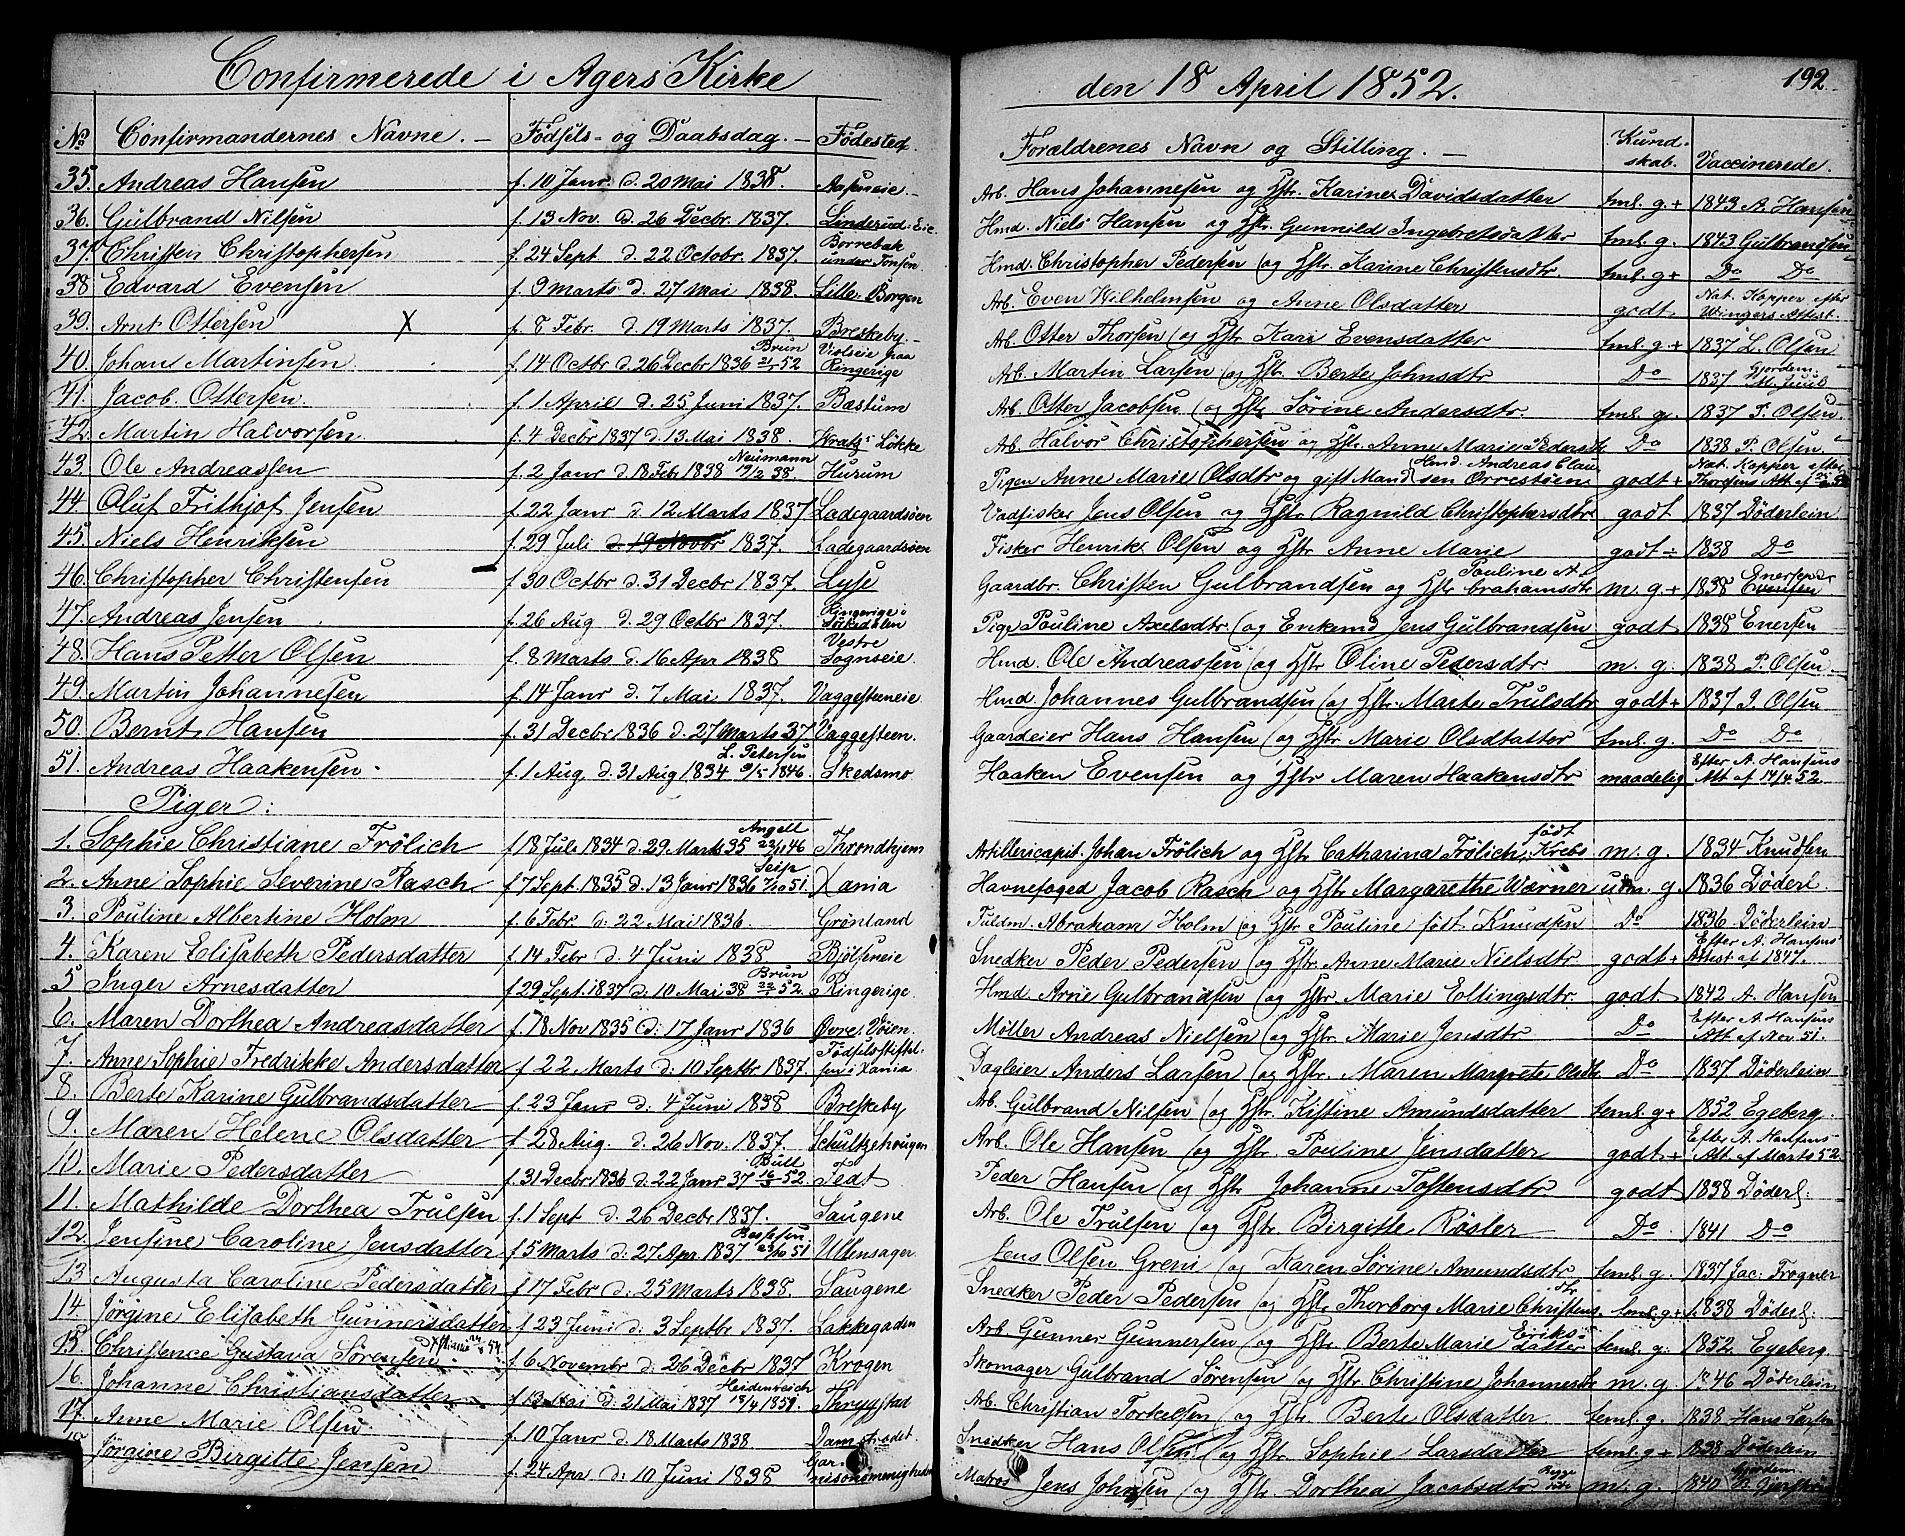 Confirmerede i Agers Kirke den 18 April 1852. 192
No Confirmandernes Navne. Fødsels- og Daabsdag. Fødested. Forældrenes Navn og Stilling. Kundskab. Vaccinerede.
35. Andreas Hansen f. 10 Janr d. 20 Mai 1838. Aasneie. Arb. Hans Johannesen og Hstr. Karine Davidsdatter tml. g.+ 1843 A. Hansen
36. Gulbrand Nilsen f. 13 Nov. d. 26 Decbr. 1837. Linderud-Eie. Hmd. Niels Hansen og Hstr Gunnild Ingebretsdatter tml. g. 1843 Gulbrandsen
37. Christen Christophersen f. 24 Sept d. 22 Octobr. 1837. Borrebak under Tonsen Hmd. Christopher Pedersen og Hstr Karine Christensdtr tml. g+ Do Do
38 Edvard Evensen f. 9 Marts d. 27 Mai 1838. Lille-Borgen Arb. Even Wilhelmsen og Anne Olsdatter godt Nat. Kopper efter Wingers Attest.
39. Arnt Ottersen X f. 8 Febr. d. 19 Marts 1837. Breskeby. Arb. Otter Thorsen og Hstr Kari Evensdatter tml. g.+ 1837 L. Olsen
40. Johan Martinsen f. 14 Octbr d. 26 Decbr 1836 Brun 21/1 52 paa Ringerige Arb. Martin Larsen og Hstr. Berte Johnsdtr Do 1837 Gjordem. M. Juul
41. Jacob Ottersen. f. 1 April d. 25 Juni 1837. Bæstum Arb. Otter Jacobsen og Hstr Sørine Andersdtr. tml. g. 1837 P. Olsen
42. Martin Halvorsen f. 4 Decbr 1837 d. 13. Mai 1838. Kratz' Løkke Arb. Halvor Christophersen og Hstr. Anne Marie Pedersdtr Do 1838 P. Olsen
43. Ole Andreassen f. 2 Janr d. 18 Febr 1838 Neumann 19/2 38. Hurum Pigen Anne Marie Olsdtr og gift Mand Hmd. Andreas Clausen godt+ Nat. Kopper efter Thorsens Att. af
44. Oluf Frithjof Jensen f. 22 Janr d. 12 Marts 1837 Ladegaardsøen Vadfisker Jens Olsen og Hstr Ragnild Christophersdtr godt 1837 Døderlein
45. Niels Henriksen f. 29 Juli d. 19 Novbr 1837. Ladegaardsøen Fisker Henrik Olsen og Hstr Anne Marie godt ÷ 1838 Do
46. Christopher Christensen f. 30 Octbr d. 31 Decbr 1837. Lyse Gaardbr. Christen Gulbrandsen og Hstr Pouline Abrahamsdtr m. g.+ 1838 Evensen
47. Andreas Jensen f. 26 Aug d. 29 Octbr 1837. Ringerige i Pige Pouline Axelsdtr. og Enkemd Jens Gulbrandsen godt 1838 Enersen
48. Hans Petter Olsen f. 8 Marts d. 16 Apr 1838 Vestre Sogneeie. Hmd. Ole Andreassen og Hstr Oline Pedersdtr. m. g. 1838 P. Olsen
49. Martin Johannesen f. 14 Janr d. 7 Mai 1837. Vaggesteeneie Hmd Johannes Gulbrandsen og Hstr. Marte Trulsdtr godt+ 1837 P. Olsen
50. Bernt Hansen f. 31 Decbr 1836 d. 27 Marts 37 Vaggesteen. Gaardeier Hans Hansen og Hstr Marie Olsdtatter tml. g. Do Do
51. Andreas Haakensen f. 1 Aug d. 31 Aug 1834 L. Petersen 9/5 1846. Skedsmo Haaken Evensen og Hstr Maren Haakensdtr maadelig Efter A. Hansens Att. af 14/4 52.
Piger:
1. Sophie Christiane Frölich f. 18 Juli 1834 d. 29 Marts 35 Angell 23/11 46 Throndhjem Artillericapit. Johan Frölich og Hstr Catharina Frölich født Krebs m. g. 1834 Knudsen
2. Anne Sophie Severine Rasch f. 7 Sept. 1835 d. 13 Janr 1836 7/10 51. Xania Havnefoged Jacob Rasch og Hstr Margarethe Wærner udm. g 1836 Døderl.
3. Pouline Albertine Holm f. 6 Febr d. 22 Mai 1836. Grønland Fuldm. Abraham Holm og Hstr Pouline født Knudsen Do 1836 Døderlein
4. Karen Elisabeth Pedersdatter f. 14 Febr d. 4 Juni 1838 Bjølseneie Snedker Peder Pedersen og Hstr Anne Marie Nielsdtr godt+ Efter A. Hansens Attest af 1847.
5 Inger Arnesdatter f. 29 Sept. 1837 d. 10 Mai 38 Brun 22/1 52. Ringerige Hmd. Arne Gulbrandsen og Hstr. Marie Ellingsdtr. godt 1842 A. Hansen
6. Maren Dorthea Andreasdatter f. 18 Nov 1835 d. 17 Janr 1836 Øvre Døien. Møller Andreas Nielsen og Hstr Marie Jensdtr Do Efter A. Hansens Att. af Nov 51.
7. Anne Sophie Fredrikke Andersdatter f. 22 Marts d. 10 Septbr 1837. Fødselsstiftelsen i Xania Dagleier Anders Larsen og Hstr. Maren Margrete Olsdtr Do 1837 Døderlein
8. Berte Karine Gulbrandsdatter f. 23 Janr d. 4 Juni 1838 Breskeby Arb. Gulbrand Nilsen og Hstr. Kistine Amundsdatter teml. g+ 1852 Egeberg.
9. Maren Helene Olsdatter f. 28 Aug. d. 26 Nov. 1837. Schultzehougen Arb. Ole Hansen og Hstr. Pouline Jensdatter godt+ Efter A. Hansens Att. af Marts 52.
10. Marie Pedersdatter f. 31 Decbr 1836 d. 22 Janr 37 Bull 16/3 52. Fedt Peder Hansen og Hstr Johanne Tostensdtr godt 1838 Døderl:
11. Mathilde Dorthea Trulsen f. 1 Sept d. 26 Decbr 1837. Saugene Arb. Ole Trulsen og Hstr Birgitte Røsler Do 1841 Do
12. Jensine Caroline Jensdatter f. 5 Marts d. 27 Apr. 1837 Bessesen 23/10 51 Ullensager Jens Olsen Greni og Karen Sørine Amundsdtr teml. g. 1837 Jac: Frogner
13 Augusta Caroline Pedersdatter f. 17 Febr d. 25 Marts 1838. Saugene Snedker Peder Pedersen og Hstr Thorborg Marie Christens dtr. teml. g.+ 1838 Døderl:
14. Jørgine Elisabeth Gunnersdatter f. 23 Juni d. 3 Septbr 1837. Lakkegaden Arb. Gunner Gunnersen og Hstr. Berte Marie Eriksdatter teml. g. 1852 Egeberg.
15. Christence Gustava Sørensen f. 6 Novembr d. 26 Decbr 1837 Krogen Skomager Gulbrand Sørensen og Hstr Christine Johannesdtr m. g. 1846 Døderlein
16. Johanne Christiansdatter f. 13 Mai d. 21 Mai 1837 Heidenreich 18/4 1851. Thrygstad Arb. Christian Torkelsen og Hstr. Berte Olsdatter teml. g. 1838 Hans Larsen
17. Anne Marie Olsen f. 10 Janr d. 18 Marts 1838 Damstrødet Snedker Hans Olsen og Hstr Sophie Larsdatter teml. g+ 1838 Døderlein
18 Jørgine Birgitte Jensen f. 24 Apr d. 10 Juni 1838 Garnisonsmenigheden Matros Jens Johnsen og Hstr. Dorthea Jacobsdtr m. g. 1840 Gjordem.